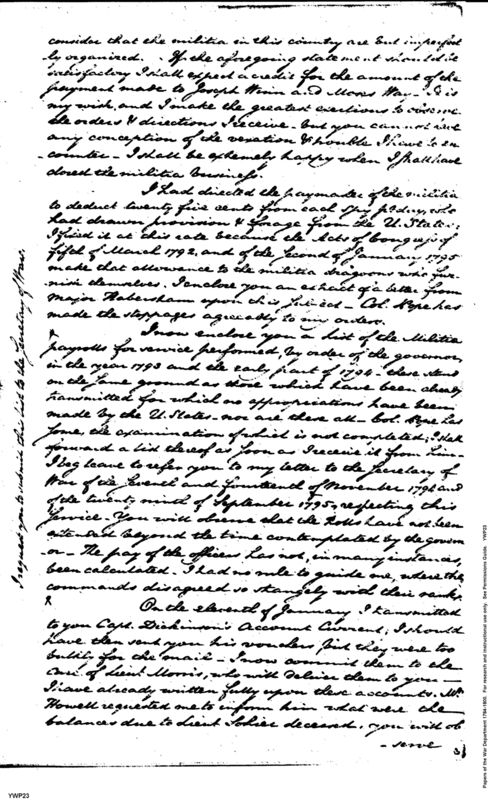 consider that the militia in this country are but imperfect
ly organized. If the aforegoing statement should be
satisfactory I shall expect a credit for the amount of the
payment made to Joseph Winn and Moses Way - It is
my wish, and I make the greatest exertions to observe
the orders & directions I receive - but you cannot have
any conception of the vexation & trouble I have to en
-counter - I shall be extremely happy when I shall have
closed the militia business.
I had directed the paymaster of the militia
to deduct twenty five cents from each pr day, who
had drawn provision & forage from the U. States;
I fixed it at this rate because the Acts of Congress of
fifth of March 1792, and of the second of January 1795
make that allowance to the militia dragoons who fur
nish themselves. I enclose you an extract of a letter from
Major Habersham upon this subject - Col. has
made the stoppages agreeably to my orders.
I now enclose you a list of the Militia
payrolls for service performed, by order of the governor,
in the year 1793 and the early part of 1794 - these stand
on the same ground as those which have been already
transmitted for which no appropriations have been
made by the U. States - nor are these all - Col. has
some, the examination of which is not completed; I shall
forward a list thereof as soon as I receive it from him
I beg leave to refer you to my letter to the Secretary of
War of the seventh and fourteenth of November 1794 and
of the twenty ninth of September 1795, respecting this
service - You will observe that the Rolls have not been
extended beyond the time contemplated by the govern
or - The pay of the officers has not, in many instances,
been calculated - I had no rule to guide me, where the
commands disagreed so strangely with their ranks;
On the eleventh of January I transmitted
to you Capt. Dickinson's Account Current; I should
have then sent you his vouchers but they were too
bulky for the mail - I now commit them to the
care of Lieut. Morris, who will deliver them to you -
I have already written fully upon these accounts. Mr.
Howell requested me to inform him what were the
balances due to Lieut deceased, you will ob
- serve
I request you to submit this list to the Secretary of War.
YWP23
Papers of the War Department 1784-1800. For research and instructional use only. See Permissions Guide. YWP23